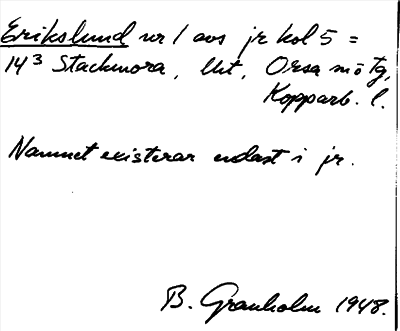 Erikslund nr 1 avs jr kol 5 =
14³ Stackmora, Utt, Orsa sn o Tg,
Kopparb. l.
Namnet existerar endast i jr.
B. Granholm 1948.